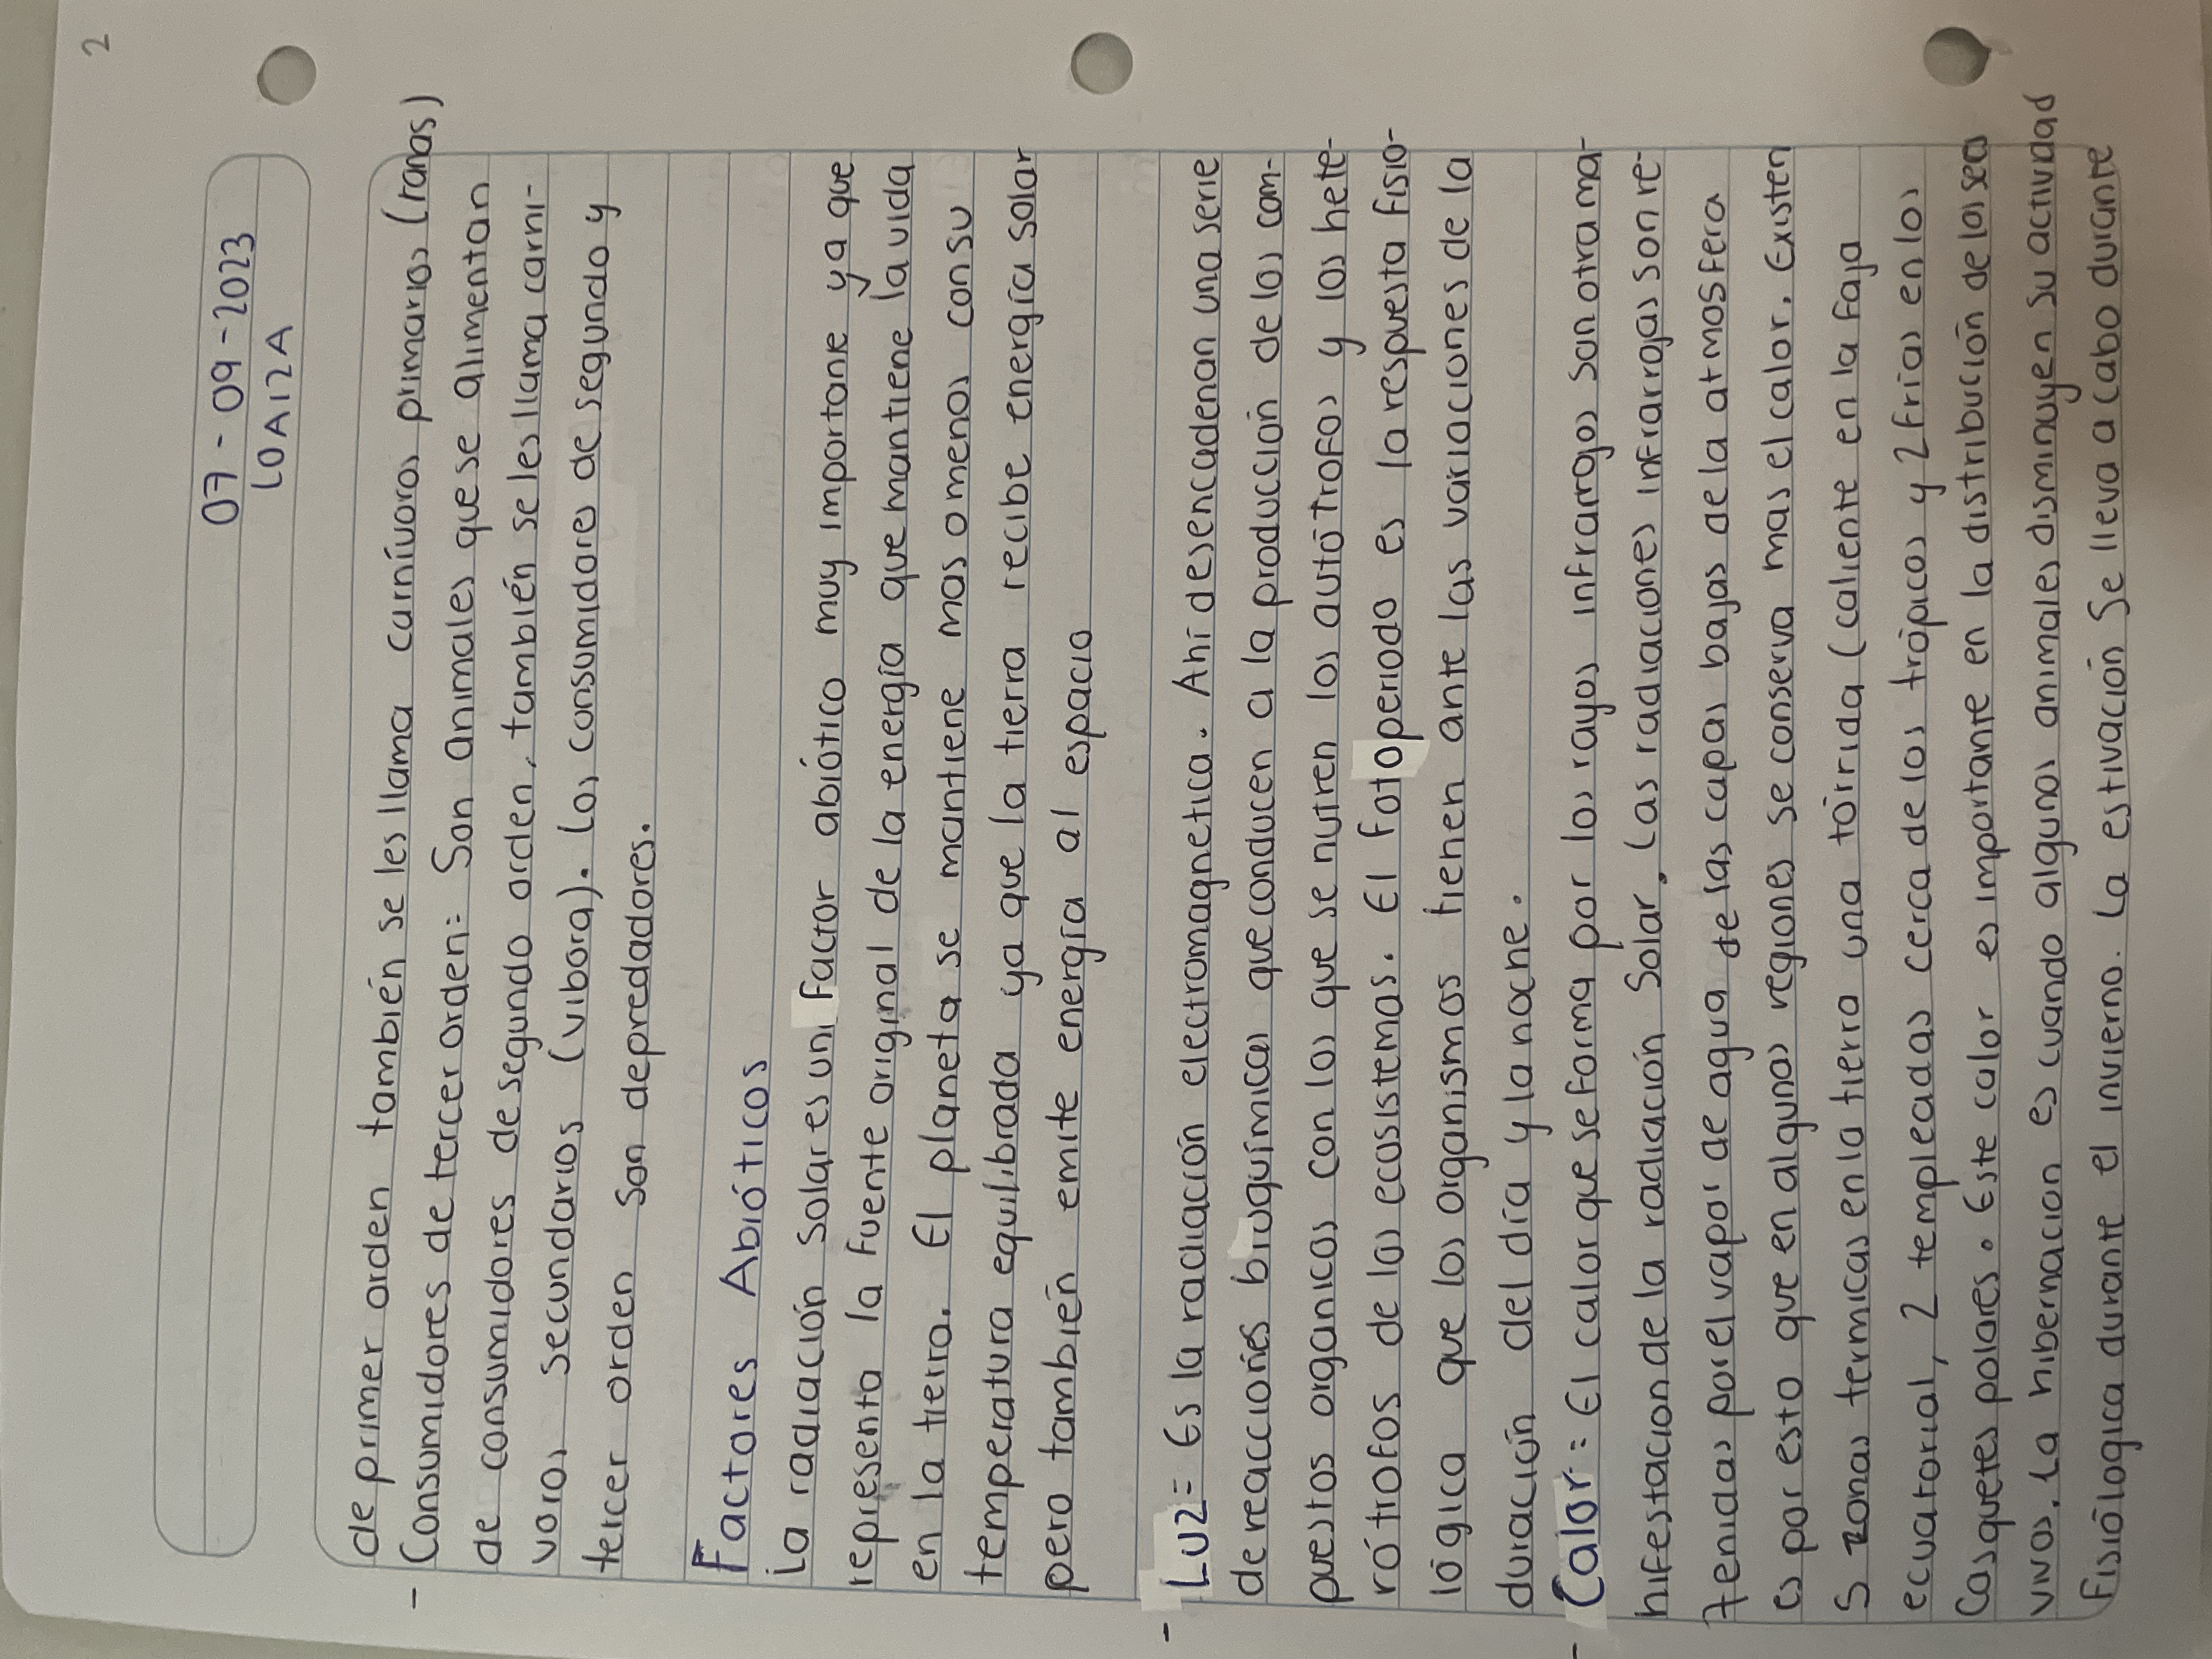 2
07-09-2023
LOAIZA
de primer orden también se les llama carnívoros primarios (ranas)
- Consumidores de tercer orden: Son animales que se alimentan
de consumidores de segundo orden, también se les llama carni-
voros secundarios (vibora). Los consumidores de segundo y
tercer orden son depredadores.
Factores Abióticos
La radiación solar es un factor abiótico muy importante ya que
representa la fuente original de la energía que mantiene la vida
en la tierra. El planeta se mantiene mas o menos con su
temperatura equilibrada ya que la tierra recibe energía solar
pero también emite energía al espacio
- Luz= Es la radiación electromagnetica. Ahí desencadenan una serie
de reacciones bioquímicas que conducen a la producción de los com-
puestos organicos con los que se nutren los autótrofos y los hete-
rótrofos de los ecosistemas. El fotoperiodo es la respuesta fisio-
lógica que los organismos tienen ante las variaciones de la
duración del día y la noche.
- Calor: El calor que se forma por los rayos infrarrojos son otra ma-
nifestacion de la radiación solar, Las radiaciones infrarrojas son re-
tenidas por el vapor de agua de las capas bajas de la atmosfera
es por esto que en algunas regiones se conserva mas el calor. Existen
5 zonas termicas en la tierra una tórrida (caliente en la faja
ecuatorial, 2 templeadas cerca de los trópicos y 2 frías en los
Casquetes polares. Este calor es importante en la distribución de los seres
vivos. La hibernacion es cuando algunos animales disminuyen su actividad
Fisiólogica durante el invierno. La estivación se lleva a cabo durante